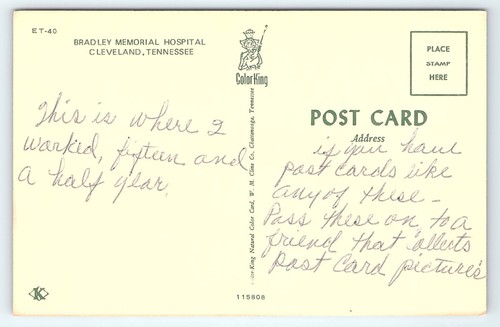 ET-40
BRADLEY MEMORIAL HOSPITAL
CLEVELAND, TENNESSEE
This is where I
worked, fifteen and
a half year.
ColorKing
Color-King Natural Color Card, W. M. Cline Co., Chattanooga, Tennessee
PLACE
STAMP
HERE
POST CARD
Address
if you have
post cards like
any of these-
Pass these on, to a
friend that collects
Post Card picture's
K
115808